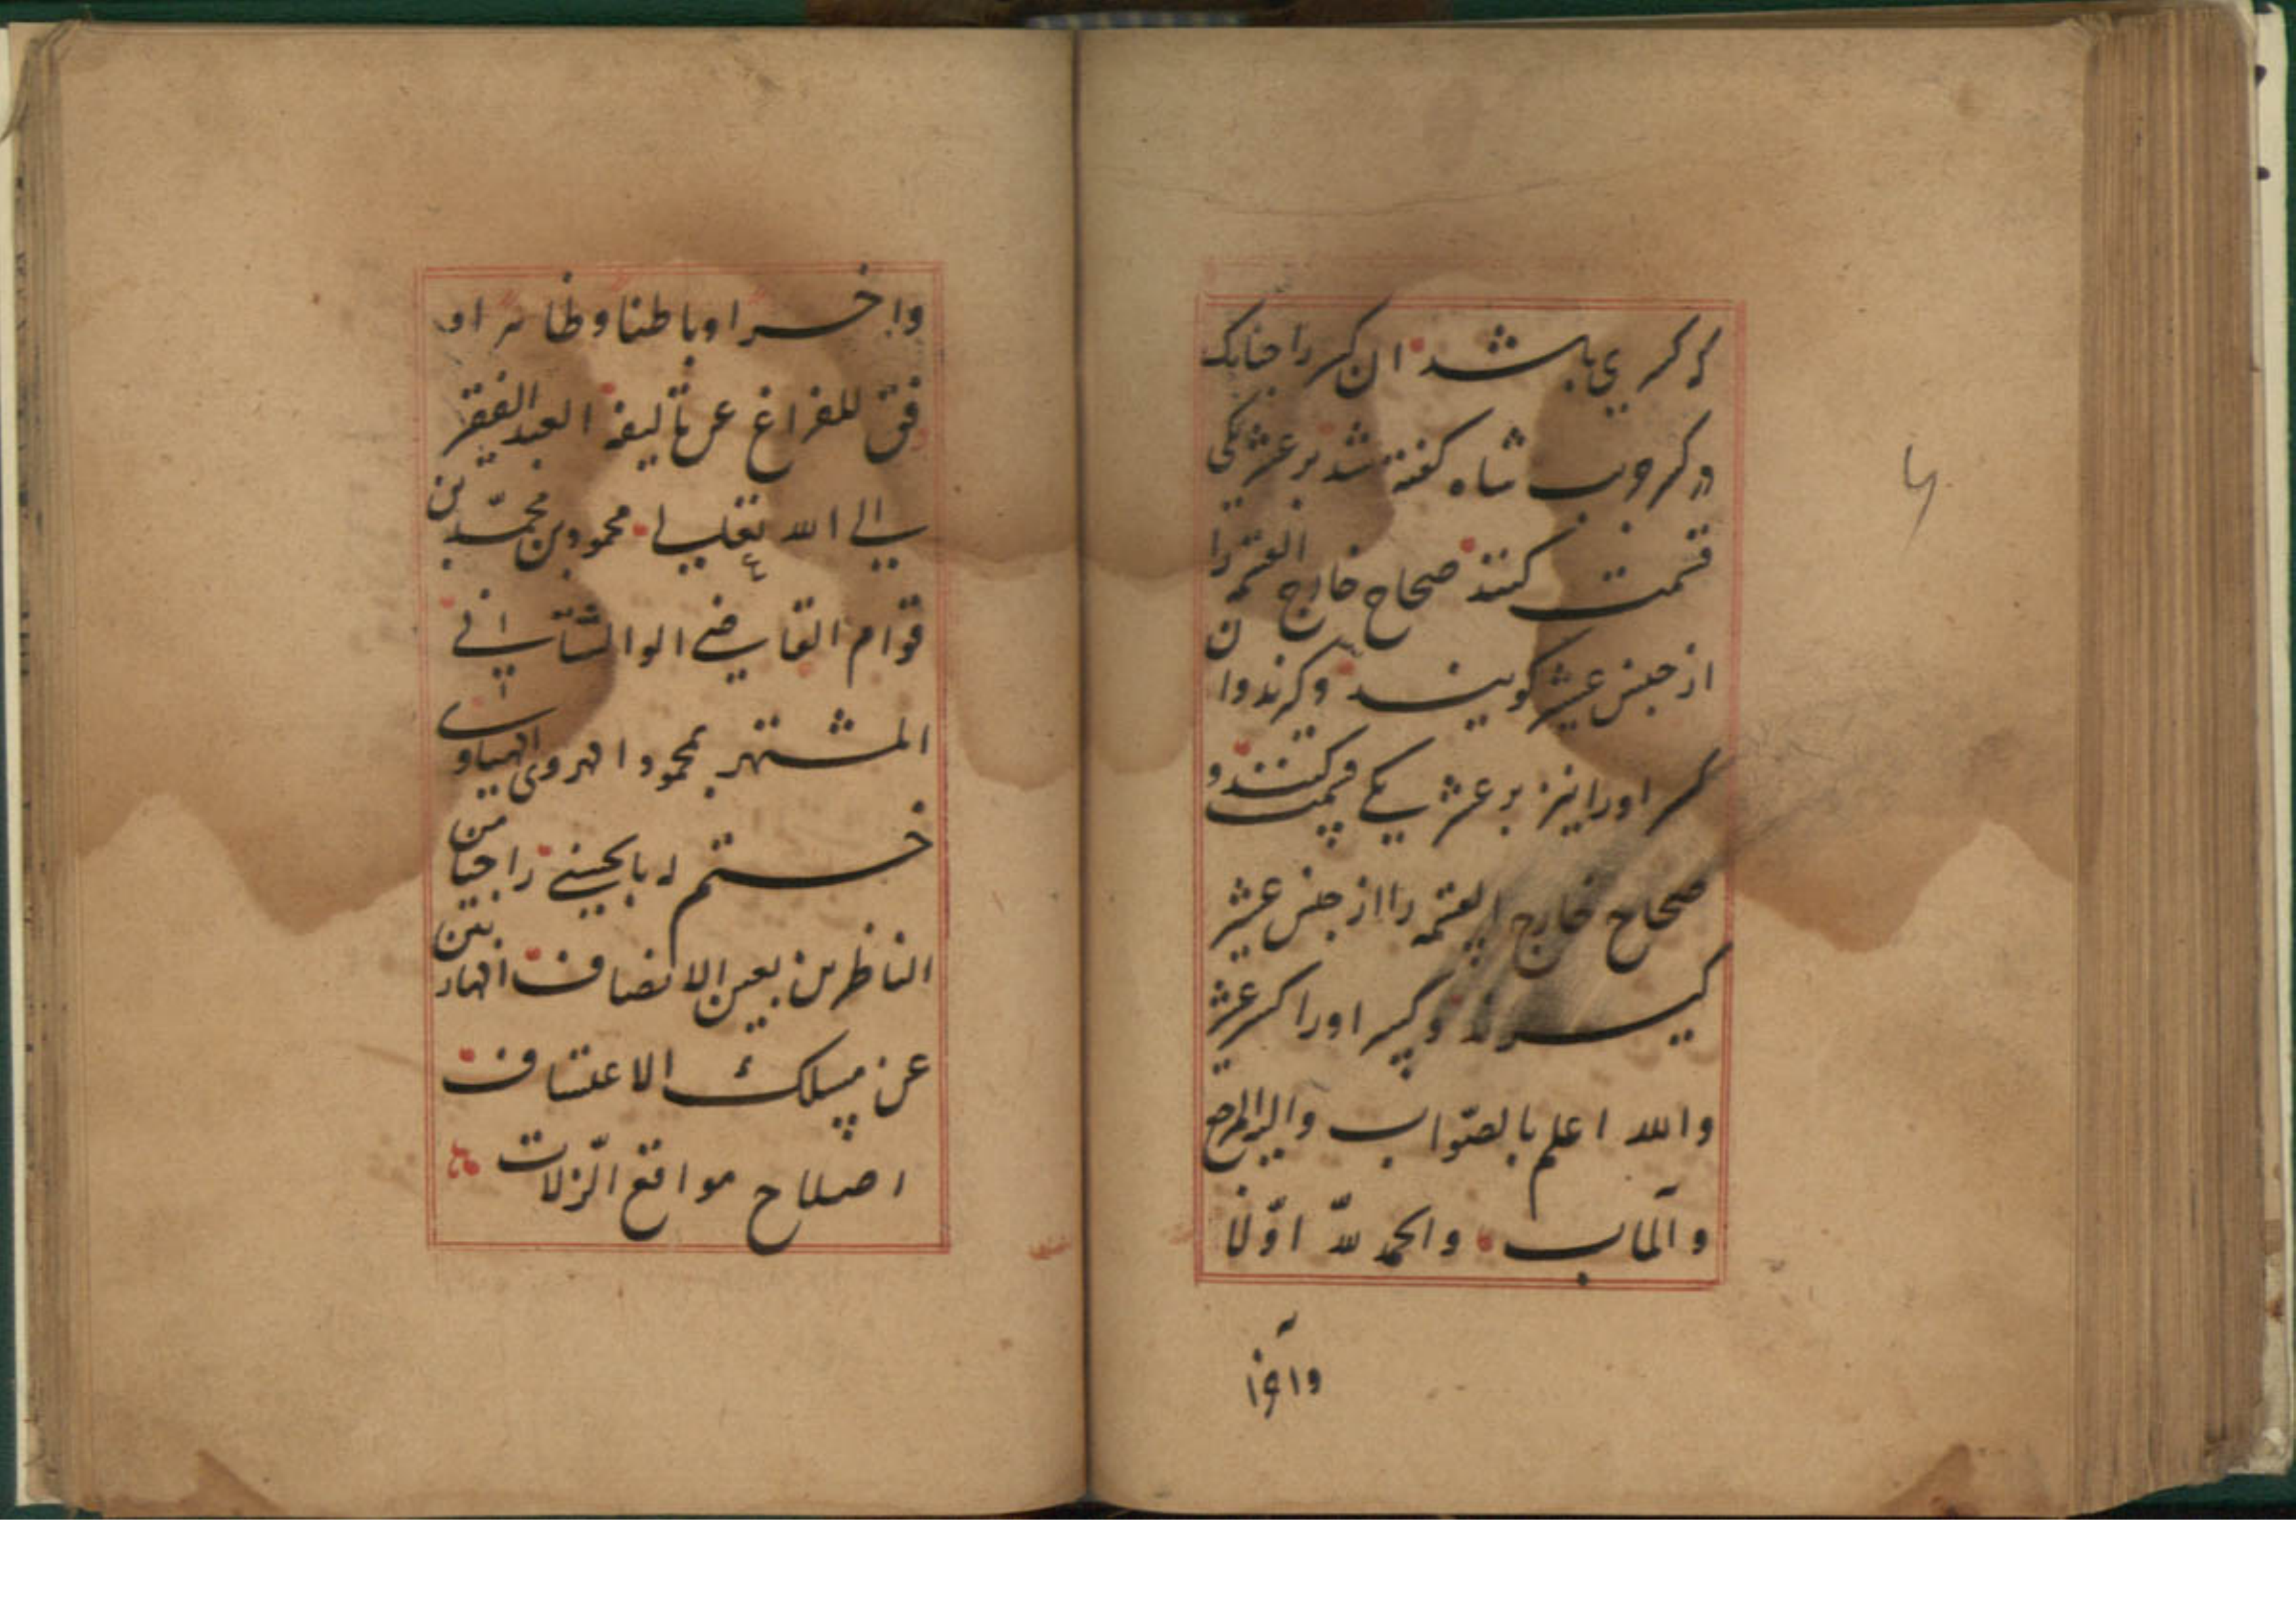 کسری باشد ان کسر را چنانک
در کر چوب شاه گفته شد بر عشر یکی
قسمت کنند صحاح خارج القسمه را
از جنس عشر گویند و کرندوان
کسر او را نیز بر عشر یکی قسمت کنند و
صحاح خارج القسمه را از جنس عشر
گیرند و کسر او را کسر عشر
والله اعلم بالصّواب والیه المرجع
والمآب والحمد للّه اوّلا
وآخرا
واخرا وباطنا وظاهرا و
فق للفراغ عن تألیفه العبد الفقیر
الی الله تعالی محمود بن محمّد بن
قوام القاضی الوالشتانی
المشتهر بمحمود الهروی
ختم له بالحسنی راجیا من
الناظرین بعین الانصاف
عن مسلک الاعتساف
اصلاح مواقع الزّلات